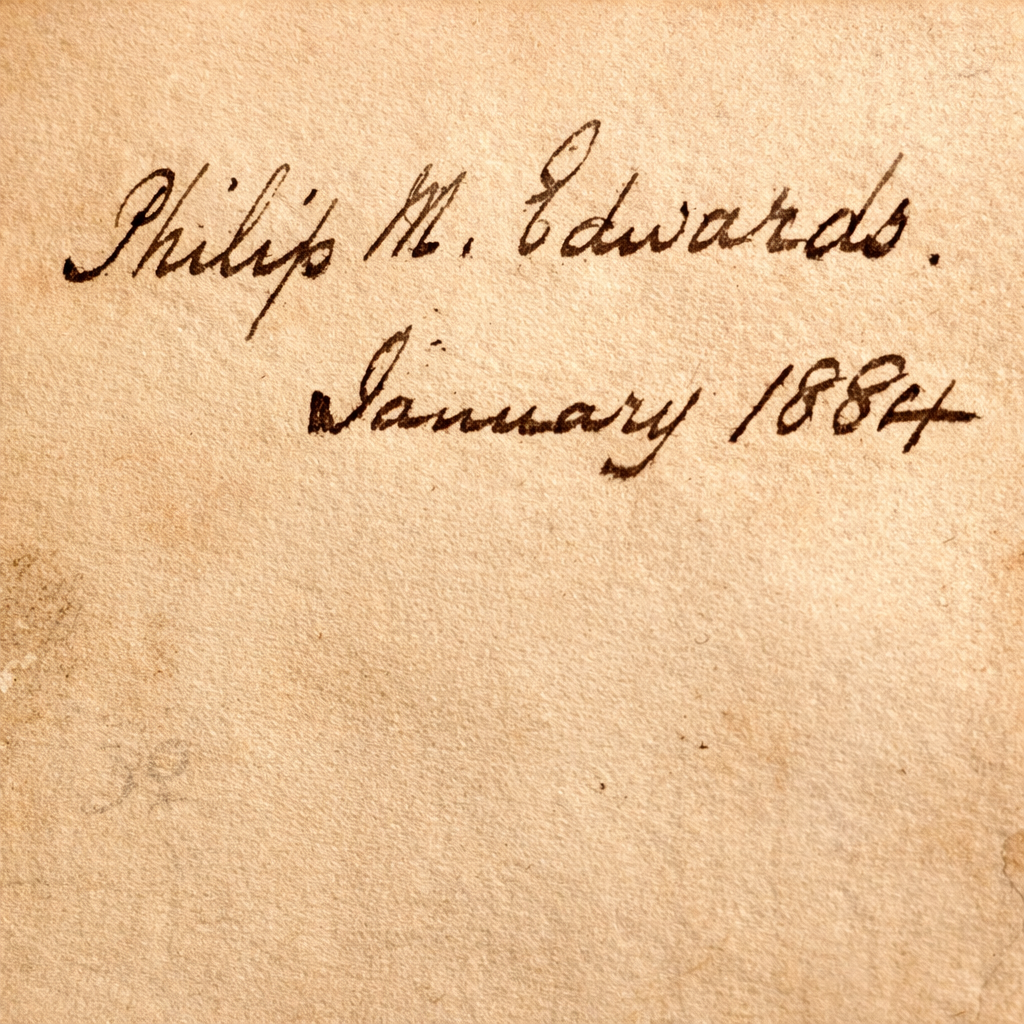 Philip M. Edwards.
January 1884